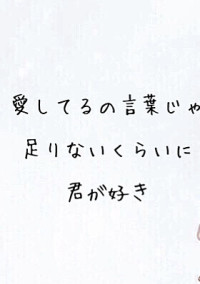 愛してるの言葉じゃ
足りないくらいに
君が好き